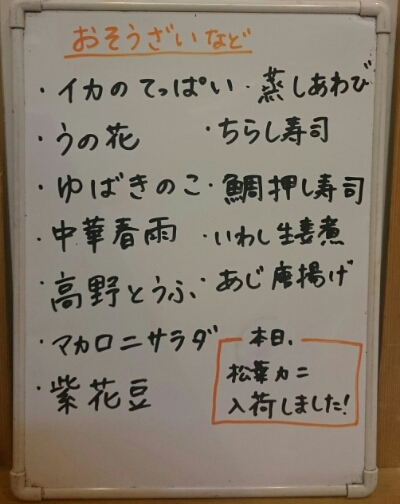 おそうざいなど
・イカのてっぱい
・うの花
・ゆばきのこ
・中華春雨
・高野とうふ
・マカロニサラダ
・紫花豆
・蒸しあわび
・ちらし寿司
・鯛押し寿司
・いわし生姜煮
・あじ唐揚げ
本日、
松葉カニ
入荷しました!